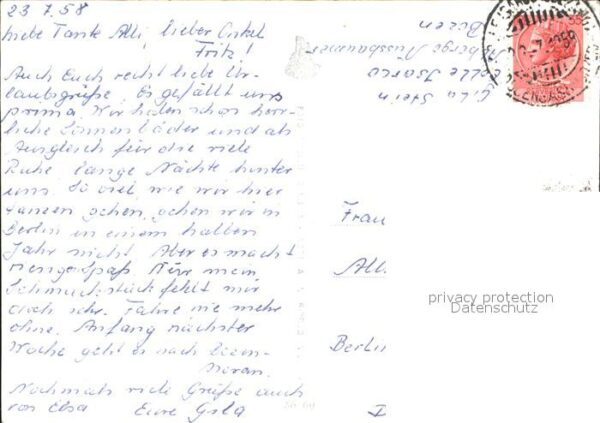 23.7.58
Liebe Tante Alli, lieber Onkel
Fritz!
Auch Euch recht liebe Ur-
laubsgrüße. Es gefällt uns
prima. Wir haben schon herr-
liche Sonnenbäder und als
Ausgleich für die viele
Ruhe, lange Nächte hinter
uns. So viel wie wir hier
tanzen gehen, gehen wir in
Berlin in einem halben
Jahr nicht. Aber es macht
Spaß Nur mein
Schmuckstück fehlt mir
doch sehr. Fahre nie mehr
ohne. Anfang nächster
Woche geht es nach
Meran.
Nochmals viele Grüße auch
von Elsa Eure Gila
Gila Stein
Colle Isarco
Albergo Nussbaumer
Bozen
Frau
All
Berlin
privacy protection
Datenschutz